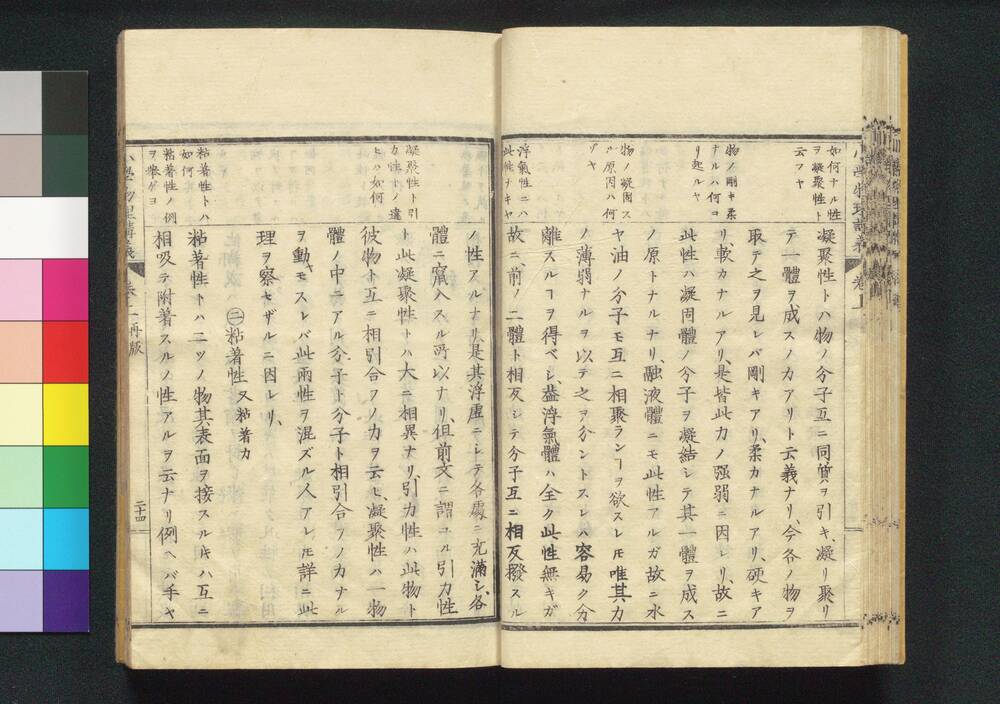 如何ナル性
ヲ凝聚性ト
云フヤ
凝聚性トハ物ノ分子互ニ同質ヲ引キ、凝リ聚リ
テ一體ヲ成スノ力アリト云義ナリ、今各ノ物ヲ
取テ之ヲ見レバ剛キアリ、柔カナルアリ、硬キア
物ノ剛キ柔
ナルハ何ヨ
リ起ルヤ
リ、軟カナルアリ、是皆此力ノ强弱ニ因レリ、故ニ
此性ハ凝固體ノ分子ヲ凝結シテ其一體ヲ成ス
ノ原トナルナリ、融液體ニモ此性アルガ故ニ水
物ノ凝固ス
ル原因ハ何
ゾヤ
ヤ油ノ分子モ互ニ相聚ランヿヲ欲スレ𪜈唯其力
ノ薄弱ナルヲ以テ之ヲ分ントスレハ容易ク分
離スルヿヲ得ベシ、蓋浮氣體ハ全ク此性無キガ
浮氣性ニハ
此性ナキヤ
故ニ、前ノ二體ト相反シテ分子互ニ相反撥スル
ノ性アルナリ、是其浮虛ニシテ各處ニ充滿シ、各
體ニ竄入スル所以ナリ、但前文ニ謂ユル引力性
凝聚性ト引
力性トノ違
ヒハ如何
ト此凝聚性トハ大ニ相異ナリ、引力性ハ此物ト
彼物ト互ニ相引合フノ力ヲ云ヒ、凝聚性ハ一物
體ノ中ニアル分子ト分子ト相引合フノ力ナル
ヲ動モスレバ此兩性ヲ混ズル人アレ𪜈詳ニ此
理ヲ察セザルニ因レリ、
㊁粘著性 又粘著力
粘著性トハ
如何
粘著性トハ二ツノ物其表面ヲ接スルキハ互ニ
粘著性ノ例
ヲ擧ゲヨ
相吸テ附着スルノ性アルヲ云ナリ例ヘバ手ヤ
小學物理講義
卷二 再版
二十四